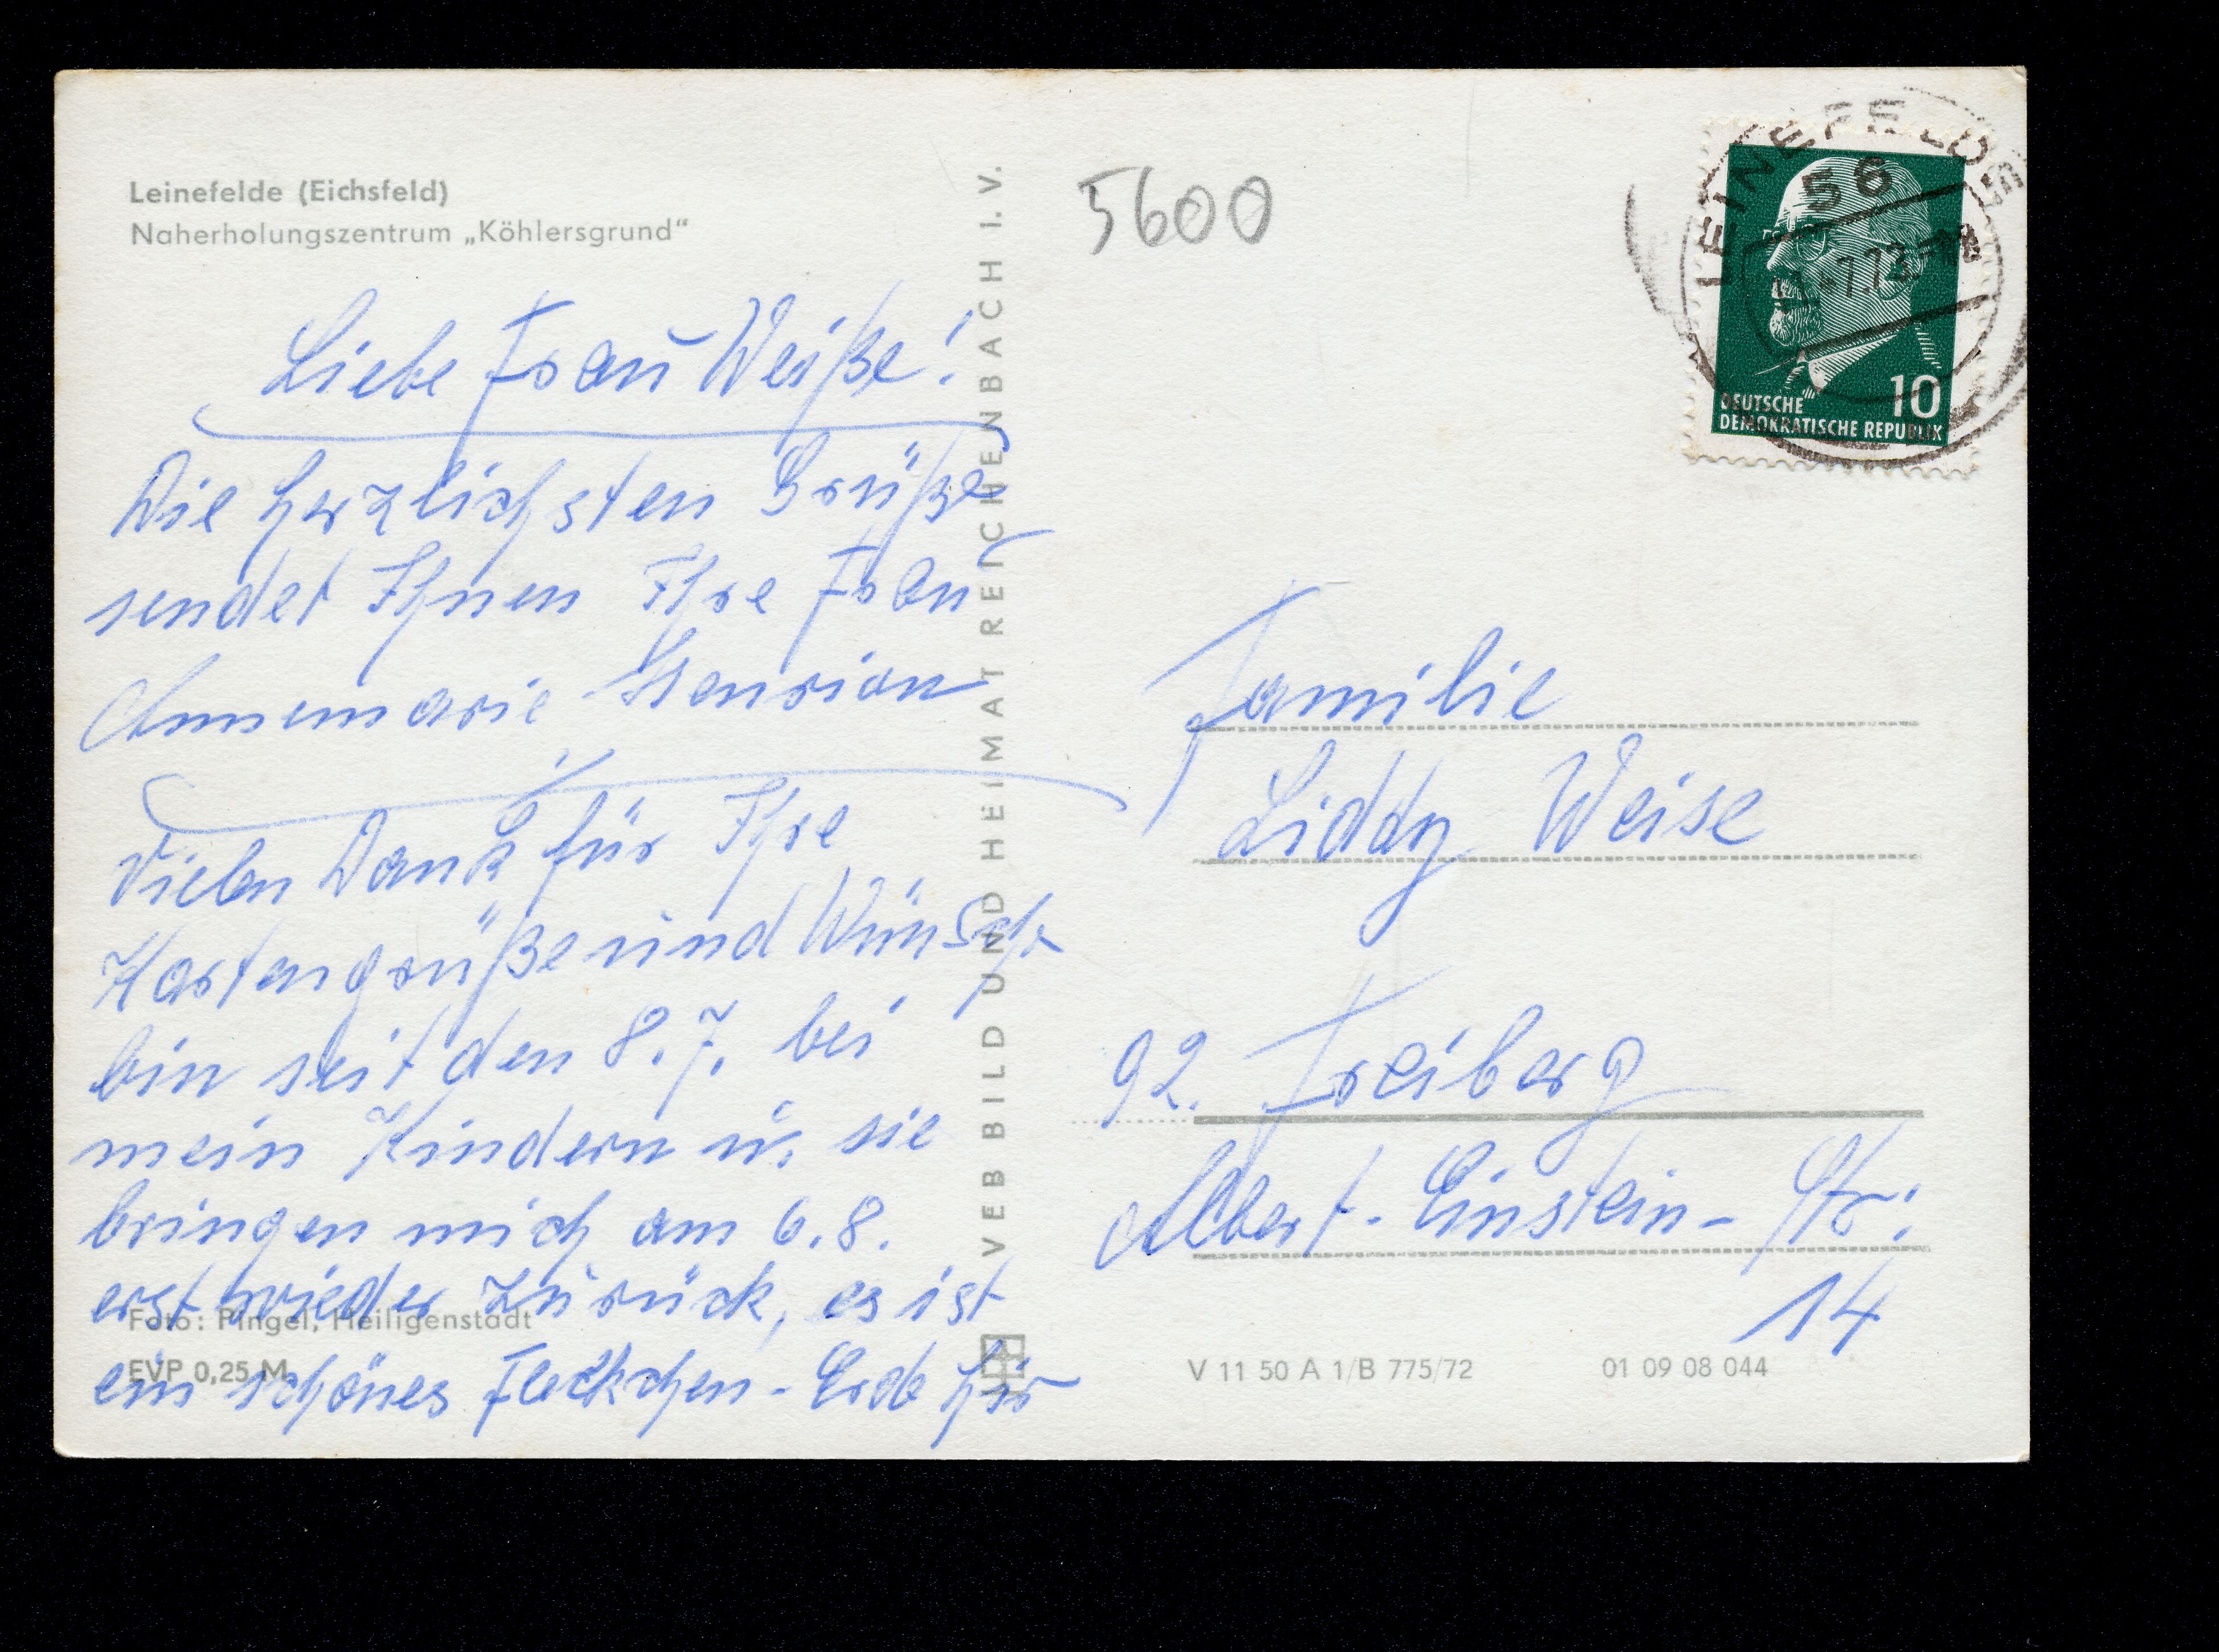 Leinefelde (Eichsfeld)
Naherholungszentrum „Köhlersgrund“
Liebe Frau Weiße!
Die herzlichsten Grüße
sendet Ihnen Ihre Frau
Annemarie Henrion
Vielen Dank für Ihre
Kartengrüße und Wünsche
bin seit den 8.7. bei
mein Kindern u. sie
bringen mich am 6.8.
erst wieder zurück, es ist
ein schönes Fleckchen-Erde hir
Foto: Pingel, Heiligenstadt
EVP 0,25 M
VEB BILD UND HEIMAT REICHENBACH I. V.
5600
LEINEFELDE
56
7.73
10
DEUTSCHE
DEMOKRATISCHE REPUBLIK
Familie
Liddy Weise
92. Freiberg
Albert-Einstein-Str.
14
V 11 50 A 1/B 775/72 01 09 08 044